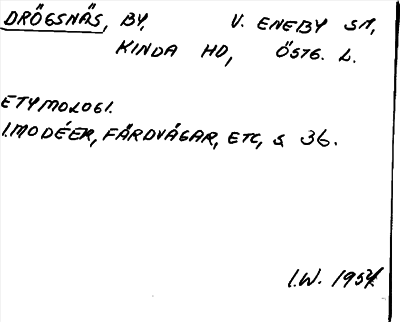 DRÖGSNÄS, BY, V. ENEBY SN,
KINDA HD, ÖSTG. L.
ETYMOLOGI.
I. MODÉER, FÄRDVÄGAR, ETC, S 36.
I.W. 1954.